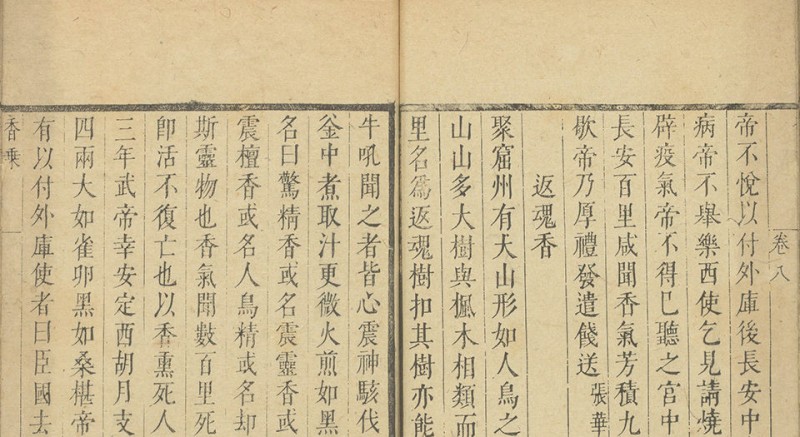 卷八
帝不悅以付外庫後長安中
病帝不舉樂西使乞見請燒
辟疫氣帝不得已聽之宮中
長安百里咸聞香氣芳積九
歇帝乃厚禮發遣餞送張華
返魂香
聚窟州有大山形如人鳥之
山山多大樹與楓木相類而
里名爲返魂樹扣其樹亦能
牛吼聞之者皆心震神駭伐
釜中煮取汁更微火煎如黑
名曰驚精香或名震靈香或
震檀香或名人鳥精或名却
斯靈物也香氣聞數百里死
卽活不復亡也以香熏死人
三年武帝幸安定西胡月支
四兩大如雀卵黑如桑椹帝
有以付外庫使者曰臣國去
香乘